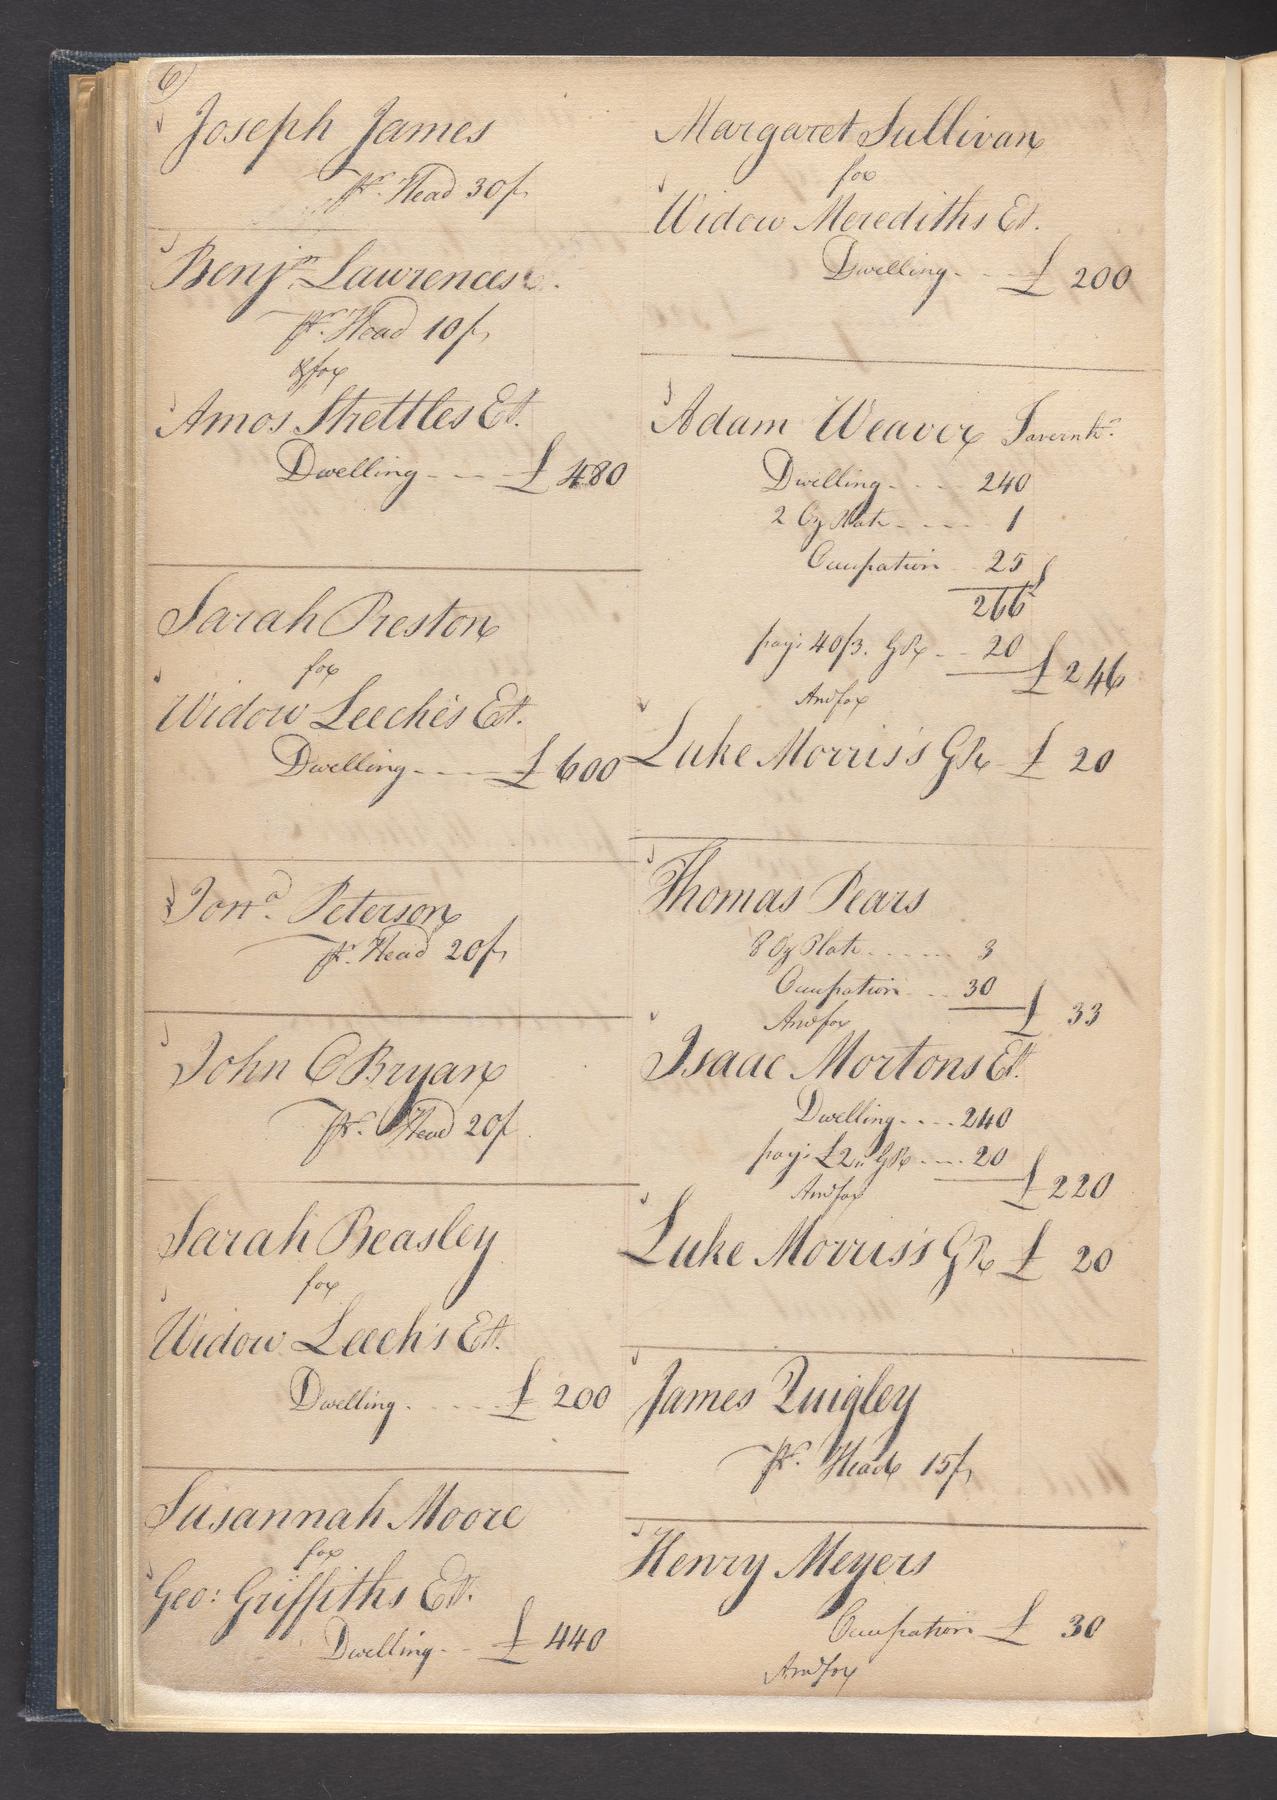 6)
Joseph James
pr. Head 30/
Benjn. Lawrences E.
pr. Head 10/
& for
Amos Strettles Et.
Dwelling - - - £ 480
Sarah Preston
for
Widow Leeches Et.
Dwelling - - - £ 600
Jona. Peterson
pr. Head 20/
John O Bryan
pr. Head 20/
Sarah Beasley
for
Widow Leech's Et.
Dwelling . - - - - £ 200
Susannah Moore
for
Geo: Griffiths Et.
Dwelling - - £ 440
Margaret Sullivan
for
Widow Merediths Et.
Dwelling - - £ 200
Adam Weaver Tavernkr.
Dwelling - - - 240
2 Oz Plate - - - - 1
Occupation - 25
266
pays 40/3. GR - - 20 £ 246
And for
Luke Morris's GR - £ 20
Thomas Pears
8 Oz Plate - - - - - - 3
Occupation - - 30 £ 33
And for
Isaac Mortons Et.
Dwelling - - - - 240
pays £2,, GR - - - - 20 £ 220
And for
Luke Morris's GR £ 20
James Quigley
pr. Head 15/
Henry Meyers
Occupation - £ 30
And for